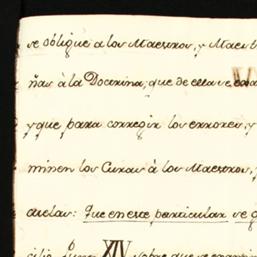 se obligue a los Maestros, y Maest
ñas à la Doctrina; que de ella se
y que para corregir los errores, y
minen los Curas à los Maestros, y
cuelas: que en este particular se
cilio XIV sobre que se